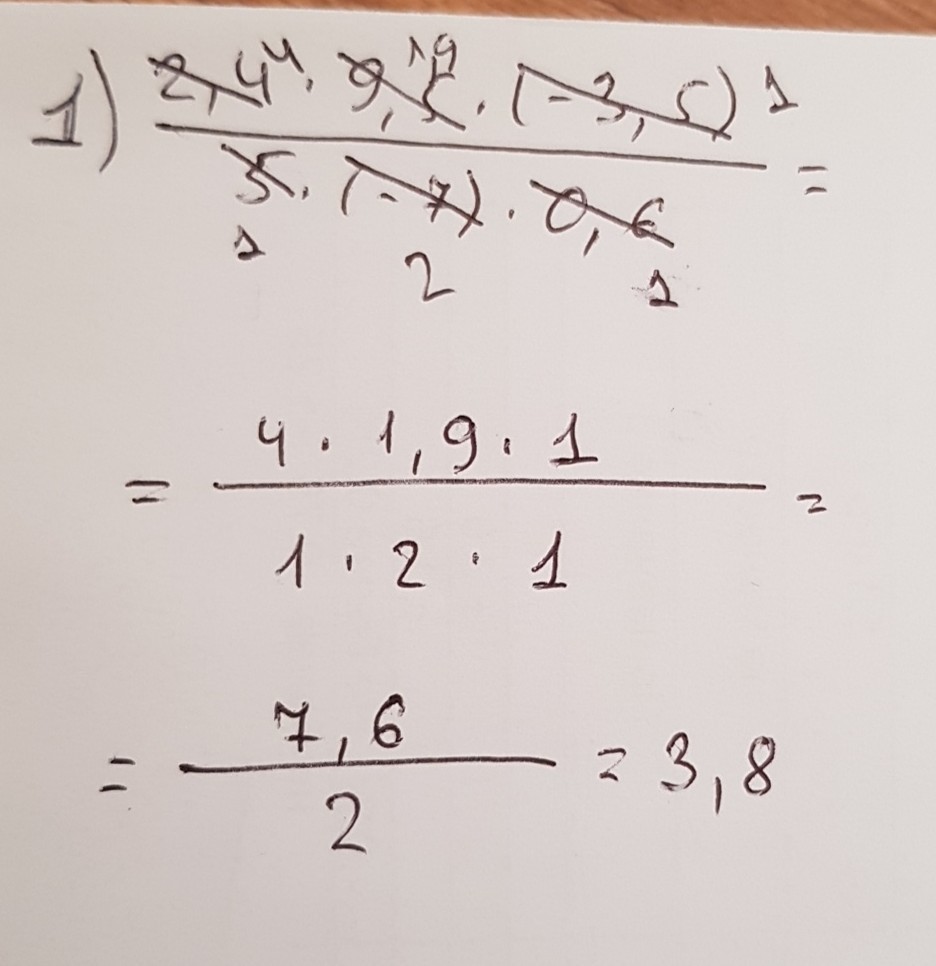 1) 2,4 4 · 9,5 19 · (-3,5) 1 =
5 · (-7) · 0,6
1 2 1
= 4 · 1,9 · 1 =
1 · 2 · 1
= 7,6 = 3,8
2